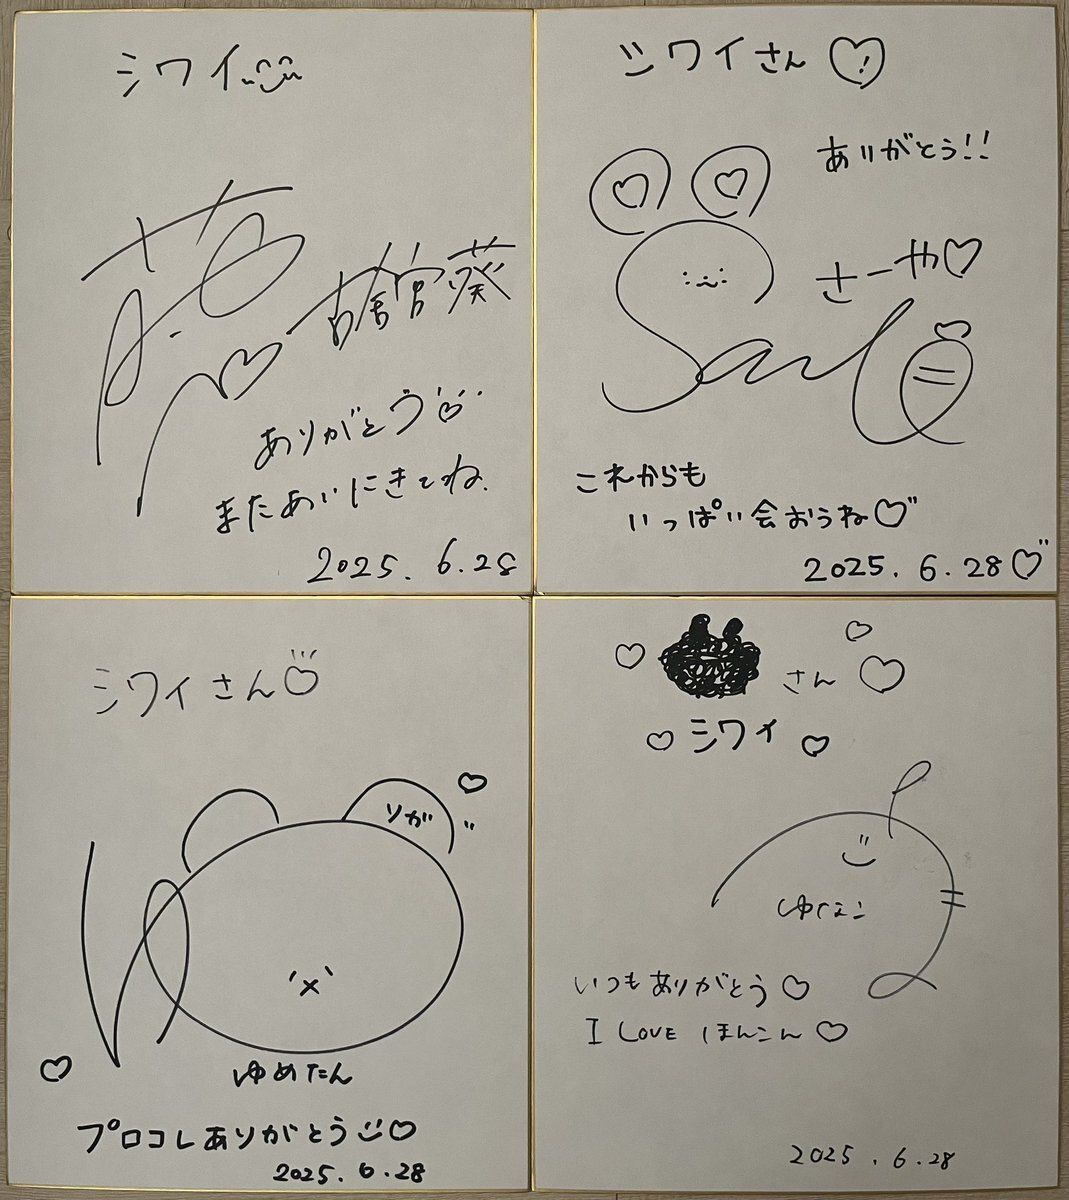 シワイ
古宮葵
ありがとう
またあいにきてね.
2025. 6.28
シワイさん
ありがとう!!
さーや
これからも
いっぱい会おうね
2025. 6.28
シワイさん
ソガ
ゆめたん
プロコレありがとう
2025. 6.28
さん
シワイ
いつもありがとう
I LOVE ほんこん
2025. 6.28